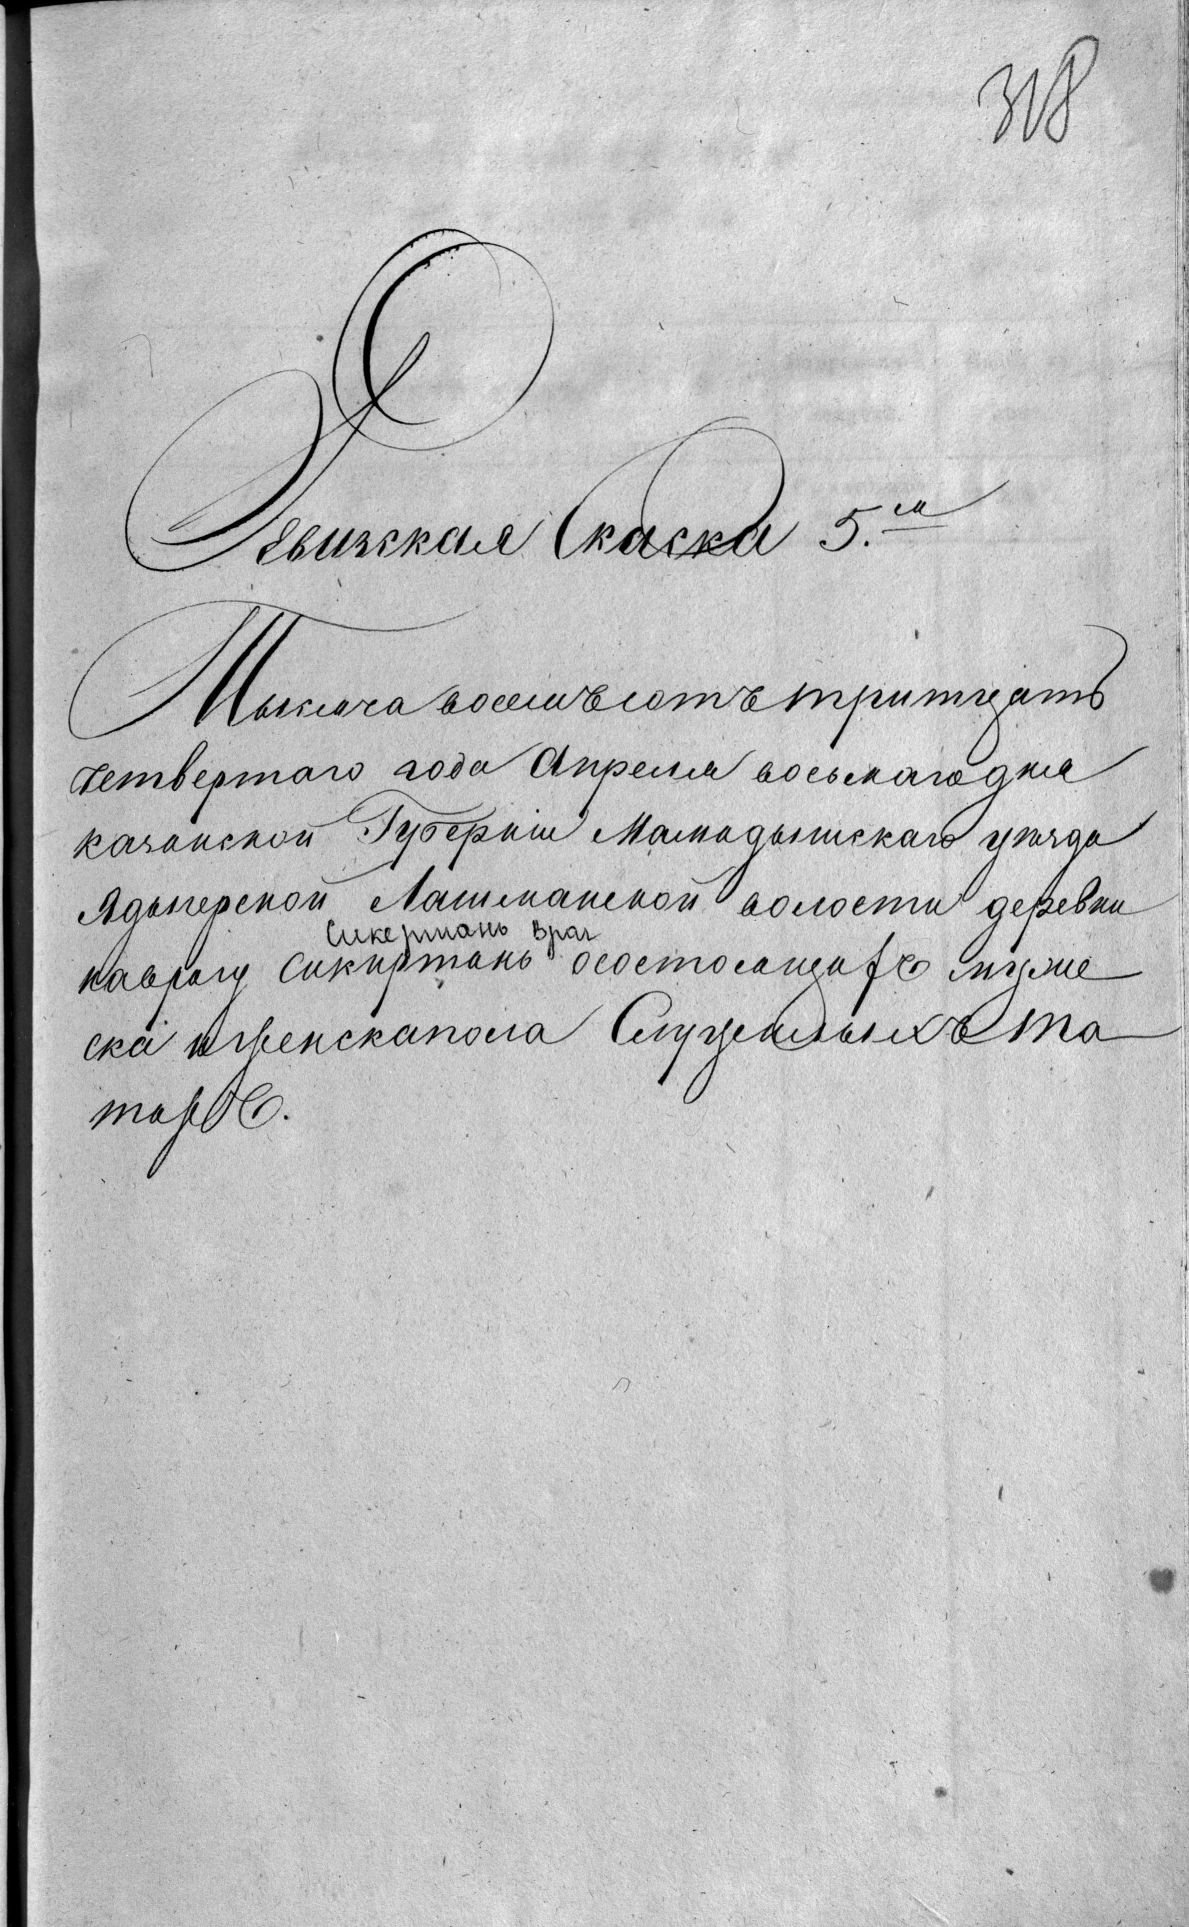 318
Ревизская Скаска 5.я
Тысяча восемьсотъ тритцать
четвертаго года Апреля восьмаго дня
казанской Губернии Мамадышскаго уезда
Ядыгерской Лашманской волости деревни
Сикертань враг
каврагу Сикиртань осостоящихъ муже
ска и женскапола Служилыхъ та
таръ.